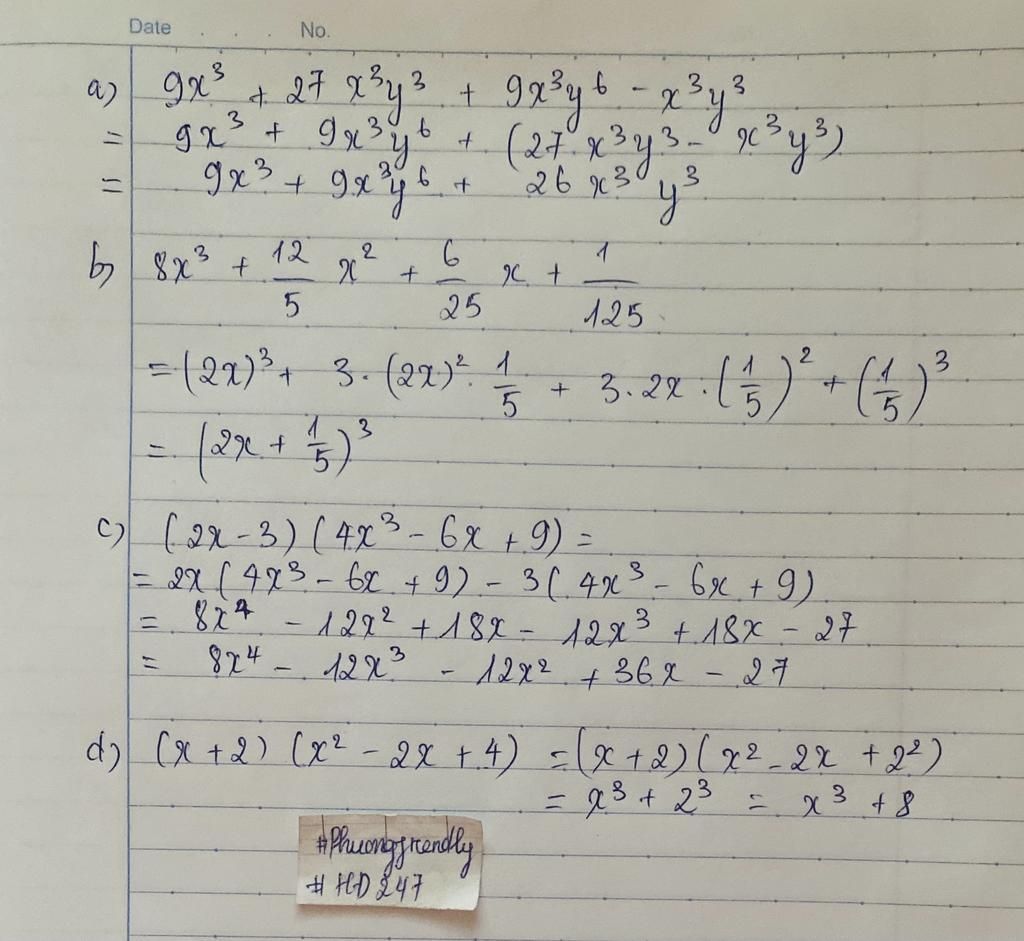 Date . . . . No.
a) 9x³ + 27 x³y³ + 9x³y⁶ - x³y³
= 9x³ + 9x³y⁶ + (27.x³y³ - x³y³)
= 9x³ + 9x³y⁶ + 26 x³ y³
b) 8x³ + 12/5 x² + 6/25 x + 1/125
= (2x)³ + 3.(2x)².1/5 + 3.2x.(1/5)² + (1/5)³
= (2x + 1/5)³
c) (2x - 3) (4x³ - 6x + 9) =
= 2x(4x³ - 6x + 9) - 3(4x³ - 6x + 9)
= 8x⁴ - 12x² + 18x - 12x³ + 18x - 27
= 8x⁴ - 12x³ - 12x² + 36x - 27
d) (x + 2) (x² - 2x + 4) = (x + 2)(x² - 2x + 2²)
= x³ + 2³ = x³ + 8
#Phuongfriendly
# HD 247